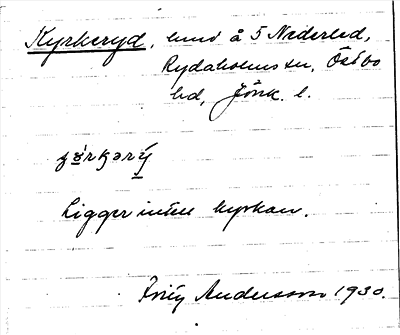 Kyrkeryd, hmd å 5 Nederled,
Rydaholms sn, Östbo
hd, Jönk. l.
Ligger intill kyrkan.
Fritz Andersson 1930.